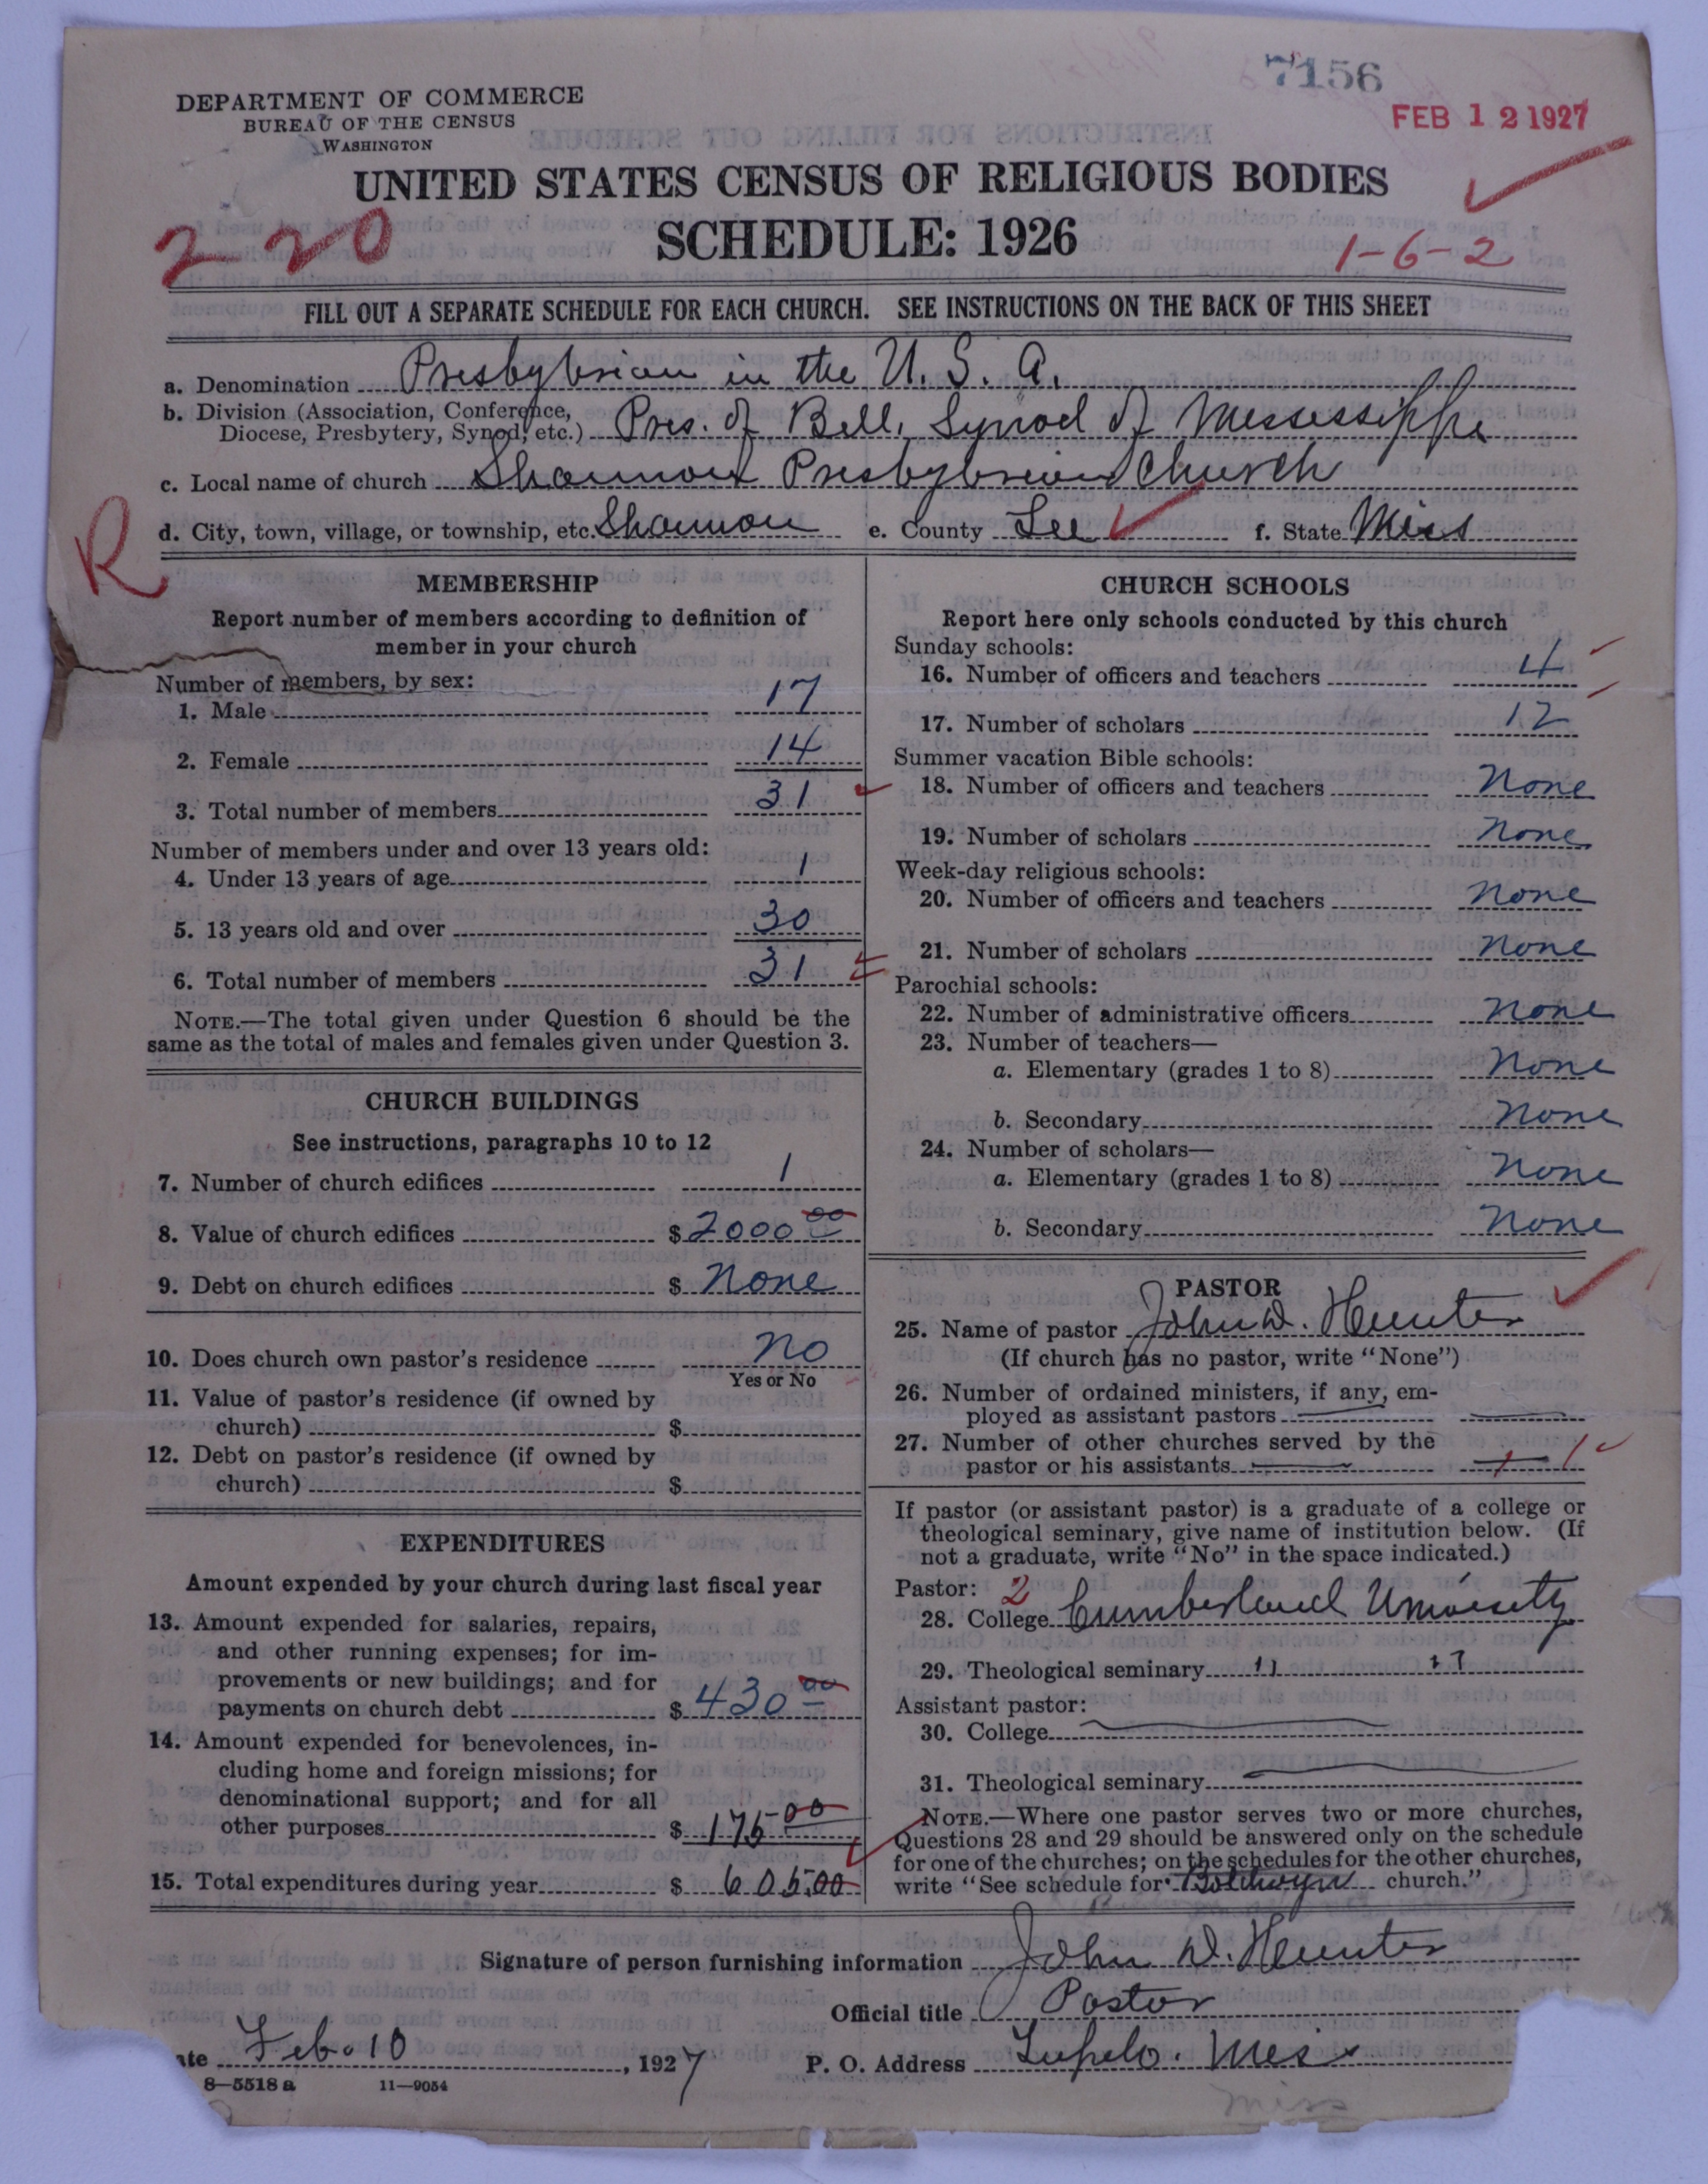 7156
FEB 12 1927
DEPARTMENT OF COMMERCE
BUREAU OF THE CENSUS
WASHINGTON
UNITED STATES CENSUS OF RELIGIOUS BODIES
SCHEDULE: 1926
2-20
1-6-2
FILL OUT A SEPARATE SCHEDULE FOR EACH CHURCH. SEE INSTRUCTIONS ON THE BACK OF THIS SHEET
a. Denomination Presbyterian in the U. S. A.
b. Division (Association, Conference, Diocese, Presbytery, Synod, etc.) Pres. of Bell, Synod of Mississippi
c. Local name of church Shannon Presbyterian Church
d. City, town, village, or township, etc. Shannon e. County Lee f. State Miss
R
MEMBERSHIP
Report number of members according to definition of
member in your church
Number of members, by sex:
1. Male 17
2. Female 14
3. Total number of members 31
Number of members under and over 13 years old:
4. Under 13 years of age 1
5. 13 years old and over 30
6. Total number of members 31
NOTE.—The total given under Question 6 should be the
same as the total of males and females given under Question 3.
CHURCH BUILDINGS
See instructions, paragraphs 10 to 12
7. Number of church edifices 1
8. Value of church edifices $ 2000 00
9. Debt on church edifices $ None
10. Does church own pastor's residence No
Yes or No
11. Value of pastor's residence (if owned by
church) $
12. Debt on pastor's residence (if owned by
church) $
EXPENDITURES
Amount expended by your church during last fiscal year
13. Amount expended for salaries, repairs,
and other running expenses; for im-
provements or new buildings; and for
payments on church debt $ 430 00
14. Amount expended for benevolences, in-
cluding home and foreign missions; for
denominational support; and for all
other purposes $ 175 00
15. Total expenditures during year $ 605.00
CHURCH SCHOOLS
Report here only schools conducted by this church
Sunday schools:
16. Number of officers and teachers 4
17. Number of scholars 12
Summer vacation Bible schools:
18. Number of officers and teachers None
19. Number of scholars None
Week-day religious schools:
20. Number of officers and teachers None
21. Number of scholars None
Parochial schools:
22. Number of administrative officers None
23. Number of teachers—
a. Elementary (grades 1 to 8) None
b. Secondary None
24. Number of scholars—
a. Elementary (grades 1 to 8) None
b. Secondary None
PASTOR
25. Name of pastor John D. Hunter
(If church has no pastor, write "None")
26. Number of ordained ministers, if any, em-
ployed as assistant pastors
27. Number of other churches served by the
pastor or his assistants 1
If pastor (or assistant pastor) is a graduate of a college or
theological seminary, give name of institution below. (If
not a graduate, write "No" in the space indicated.)
Pastor: 2
28. College Cumberland University
29. Theological seminary " "
Assistant pastor:
30. College
31. Theological seminary
NOTE.—Where one pastor serves two or more churches,
Questions 28 and 29 should be answered only on the schedule
for one of the churches; on the schedules for the other churches,
write "See schedule for church."
Signature of person furnishing information John D. Hunter
Official title Pastor
ate Feb. 10, 1927 P. O. Address Tupelo. Miss
8—5518 a 11—9054
Miss